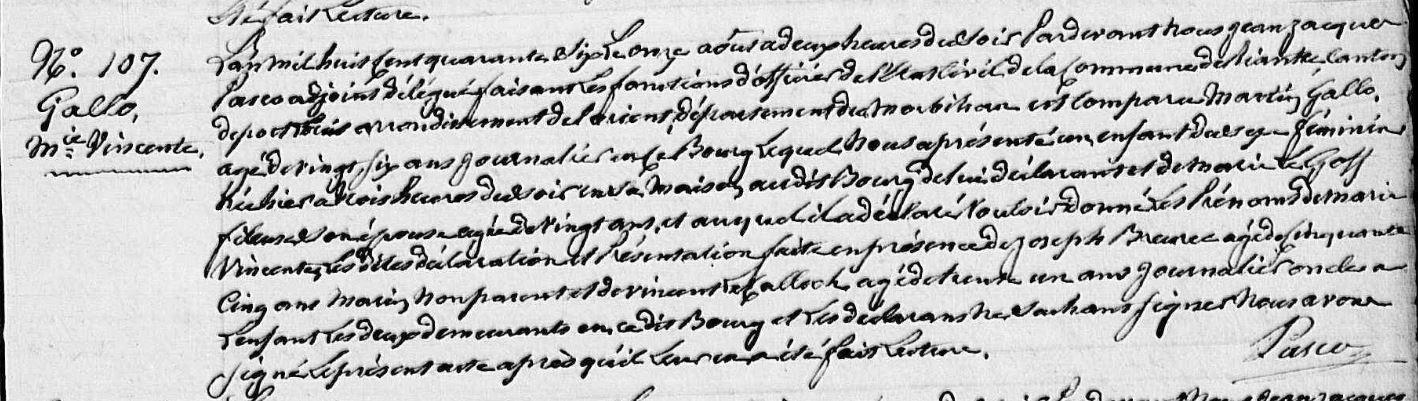 été fait Lecture.
N.o 107.
Gallo,
M.ie Vincente,
L'an mil huit Cent quarante Six Le onze août a deux heures du soir Pardevant Nous jean jacques
Pasco adjoint délégué faisant Les fonctions d'officier de l'Etat Civil de la Commune de Riantec Canton
de port Louis arrondissement de lorient, département du morbihan est Comparu Martin Gallo,
agé de vingt, six ans journalier en ce Bourg Lequel Nous a présenté un enfant du sexe féminin
Né hier a trois heures du soir en sa Maison audit Bourg de lui déclarant et de marie Le Goff
fileuse son épouse agée de vingt ans, et auquel il a déclaré Vouloir donné Les Prénoms de marie
Vincente, Les dites déclaration et Présentation faite en présence de joseph agé de Cinquante
Cinq ans Marin Non parent et de vincent Le Calloch agé de trente un ans journalier oncle a
L'enfant Les deux demeurants en ce dit Bourg et Les déclarans Ne Sachans signer Nous avons
Signé Le présent acte après qu'il Leur en a été fait Lecture.
Pasco